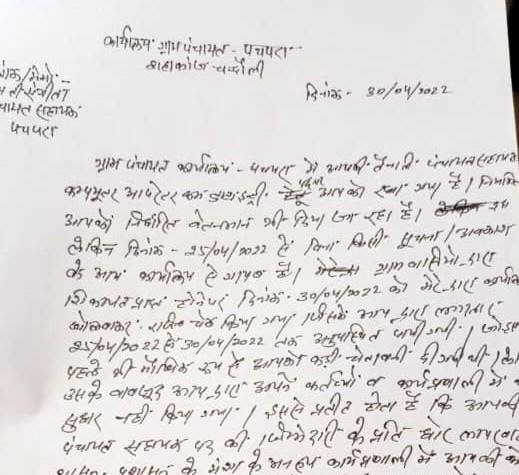 कार्यालय ग्राम पंचायत - पचपरा
शहाबगंज - चन्दौली
दिनांक - 30/04/2022
पंचायत सहायक
पचपरा
ग्राम पंचायत कार्यालय - पचपरा में आपकी तैनाती पंचायत सहायक
कम्प्यूटर आपरेटर आपको रखा गया है।
आपको निर्धारित वेतनमान भी दिया जा रहा है।
लेकिन दिनांक - 25/04/2022 से बिना किसी सूचना / अवकाश
के आप कार्यालय से गायब हैं। ग्राम वासियों द्वारा
शिकायत प्राप्त होने पर दिनांक - 30/04/2022 को मेरे द्वारा कार्यालय
खोलवाकर चेक किया गया। जिसमें आप द्वारा लगातार
25/04/2022 से 30/04/2022 तक अनुपस्थित पायी गयी।
पहले भी मौखिक रूप से आपको कड़ी चेतावनी दी गयी थी।
उसके बावजूद आप द्वारा अपने कर्तव्यों व कार्यप्रणाली में
सुधार नहीं किया गया। इससे प्रतीत होता है कि आपकी
पंचायत सहायक पद की जिम्मेदारी के प्रति घोर लापरवाही
के मंशा के अनुरूप कार्यप्रणाली में आपकी